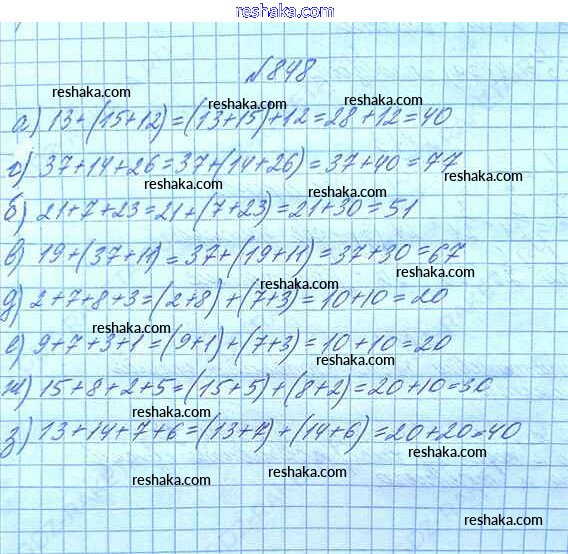 reshaka.com
№848
reshaka.com
reshaka.com
reshaka.com
а) 13+(15+12)=(13+15)+12=28+12=40
г) 37+14+26=37+(14+26)=37+40=77
reshaka.com
reshaka.com
б) 21+7+23=21+(7+23)=21+30=51
в) 19+(37+11)=37+(19+11)=37+30=67
reshaka.com
reshaka.com
д) 2+7+8+3=(2+8)+(7+3)=10+10=20
reshaka.com
е) 9+7+3+1=(9+1)+(7+3)=10+10=20
reshaka.com
ж) 15+8+2+5=(15+5)+(8+2)=20+10=30
reshaka.com
з) 13+14+7+6=(13+7)+(14+6)=20+20=40
reshaka.com
reshaka.com
reshaka.com